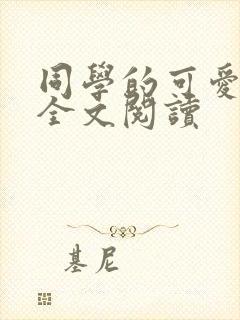 同學的可愛
全文閱讀
基尼